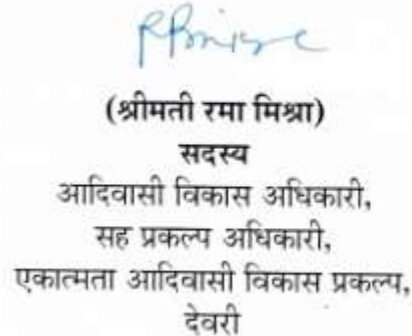 (श्रीमती रमा मिश्रा)
सदस्य
आदिवासी विकास अधिकारी,
सह प्रकल्प अधिकारी,
एकात्मता आदिवासी विकास प्रकल्प,
देवरी